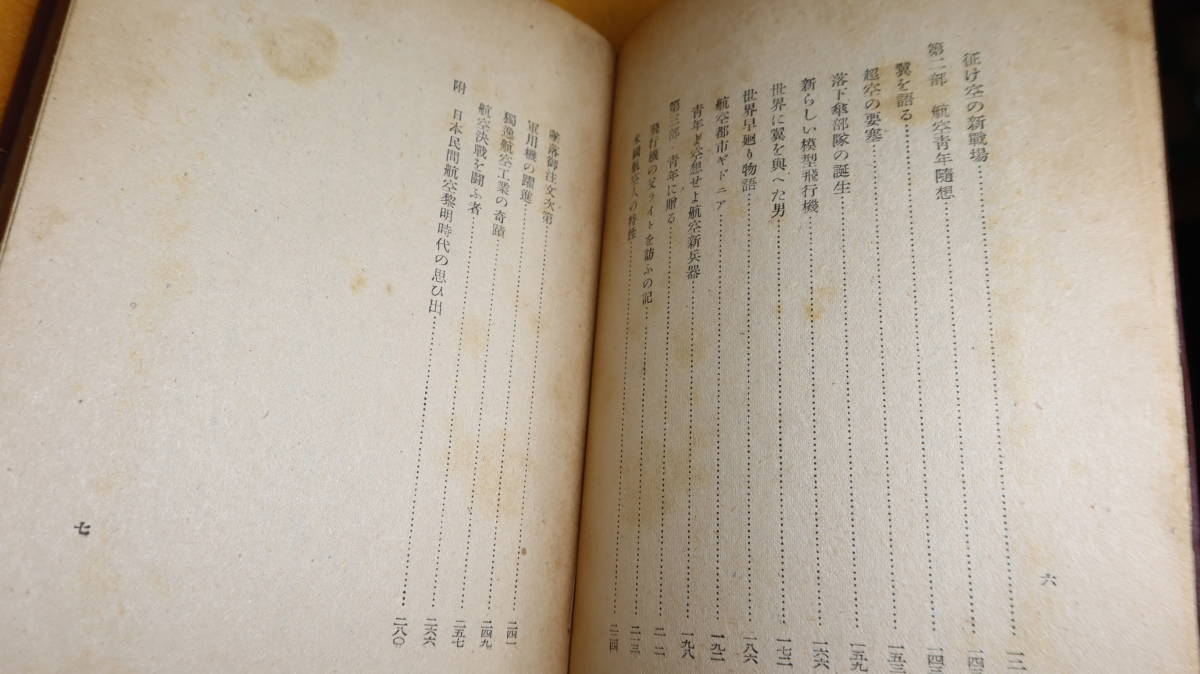 征け空の新戰場……一二
第二部 航空青年隨想……一四三
翼を語る……一四三
超空の要塞……一五三
落下傘部隊の誕生……一五九
新らしい模型飛行機……一六六
世界に翼を與へた男……一七二
世界早廻り物語……一八六
航空都市ギドニア……一九二
青年よ空想せよ航空新兵器……一九八
第三部 青年に贈る……二一二
飛行機の父ライトを訪ふの記……二一三
米國航空人の特性……二二四
六
墜落御注文次第……二四一
軍用機の躍進……二四九
獨逸航空工業の奇蹟……二五七
航空決戰を鬪ふ者……二六六
附 日本民間航空黎明時代の思ひ出……二八〇
七